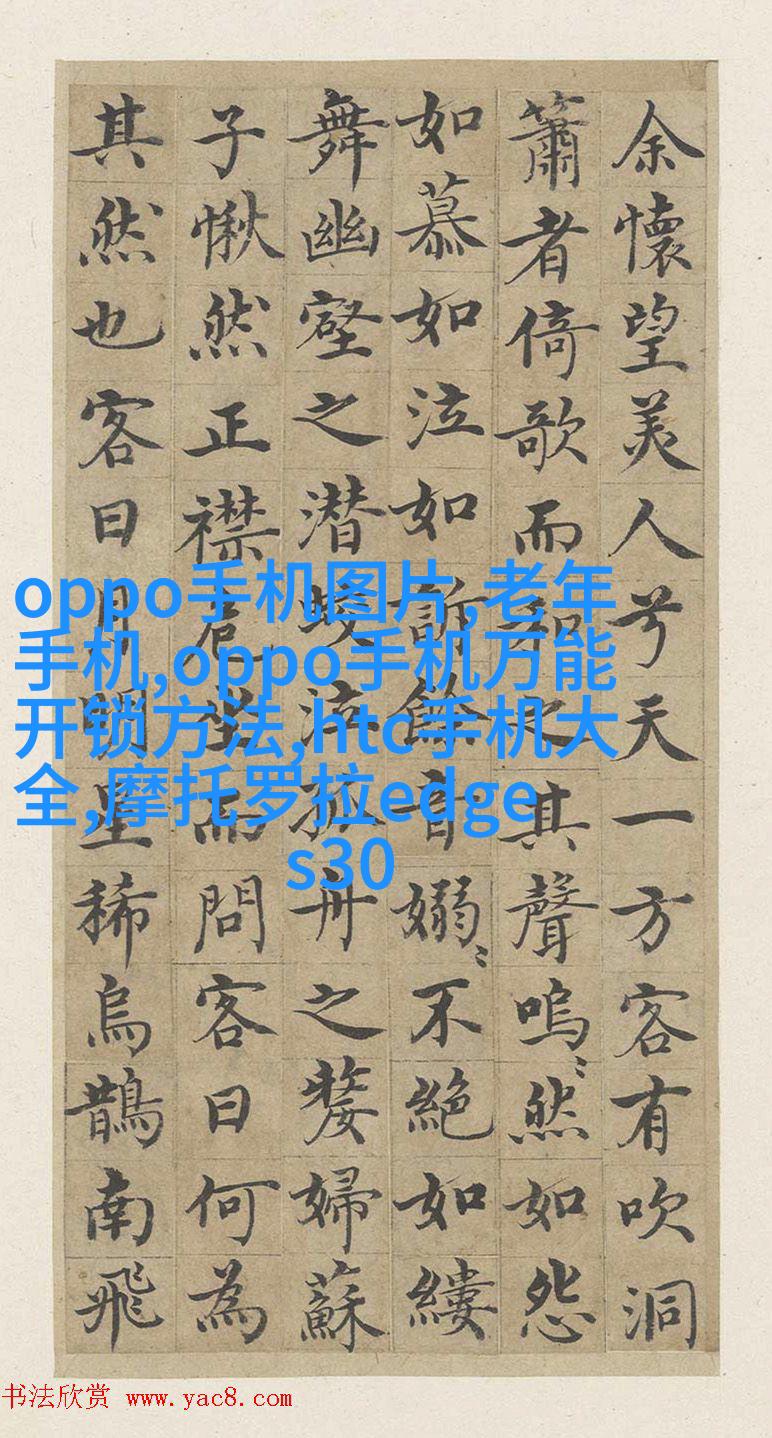 余懷望美人兮天一方客有吹洞
簫者倚歌而和之其聲嗚〻然如怨
如慕如泣如訴餘音嫋〻不絕如縷
舞幽壑之潛蛟泣孤舟之嫠婦蘇
子愀然正襟危坐而問客曰何為
其然也客曰月明星稀烏鵲南飛
oppo手机图片,老年
手机,oppo手机万能
开锁方法,htc手机大
全,摩托罗拉edge
s30
书法欣赏 www.yac8.com